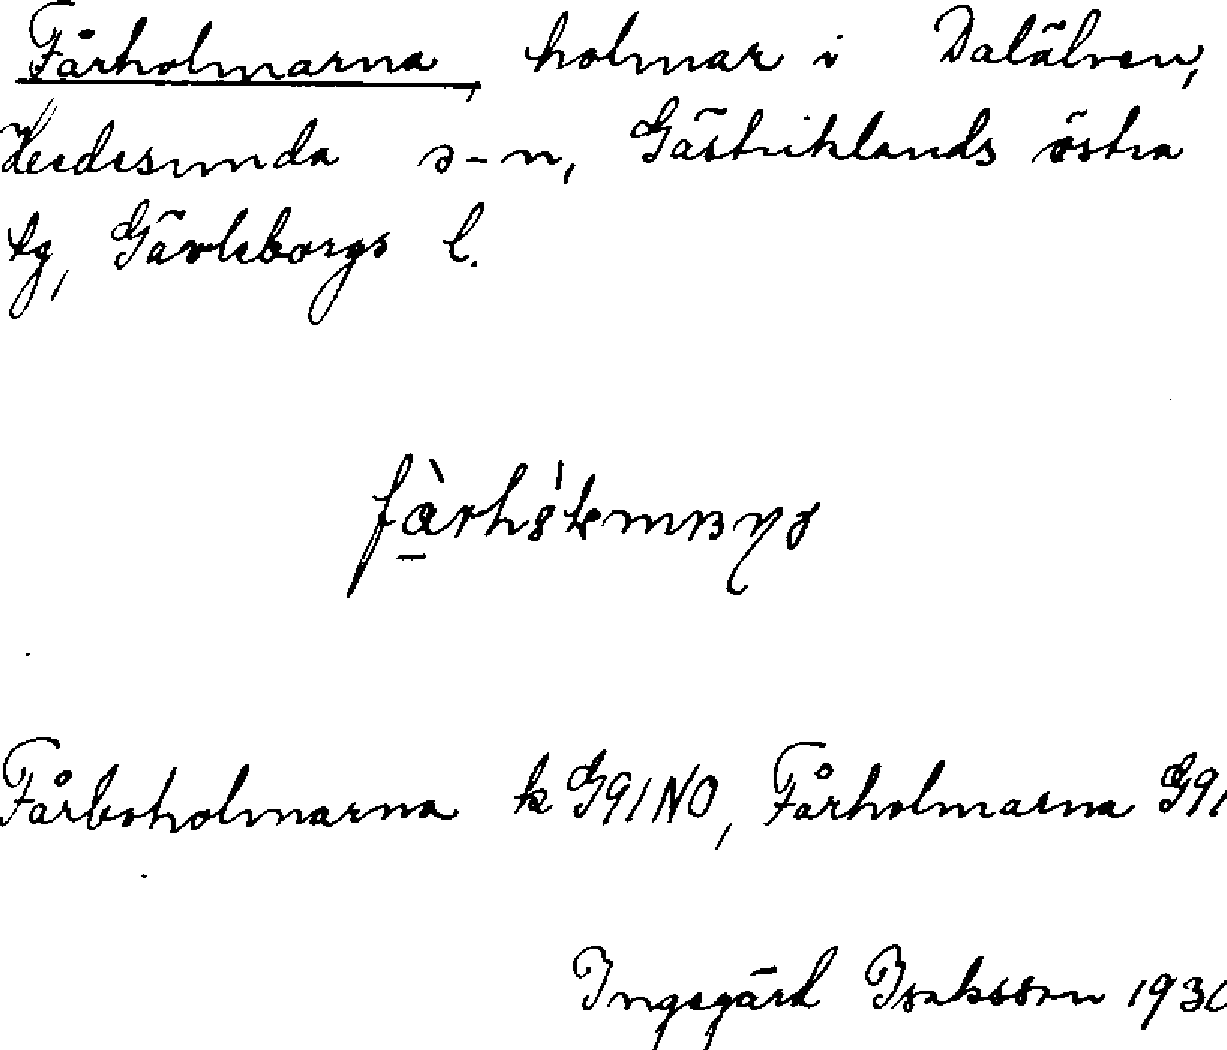 Fårholmarna, holmar i Dalälven,
Hedesunda s-n, Gästriklands östra
tg, Gävleborgs l.
Fårboholmarna k G91NO, Fårholmarna G91
Ingegärd Isaksson 193